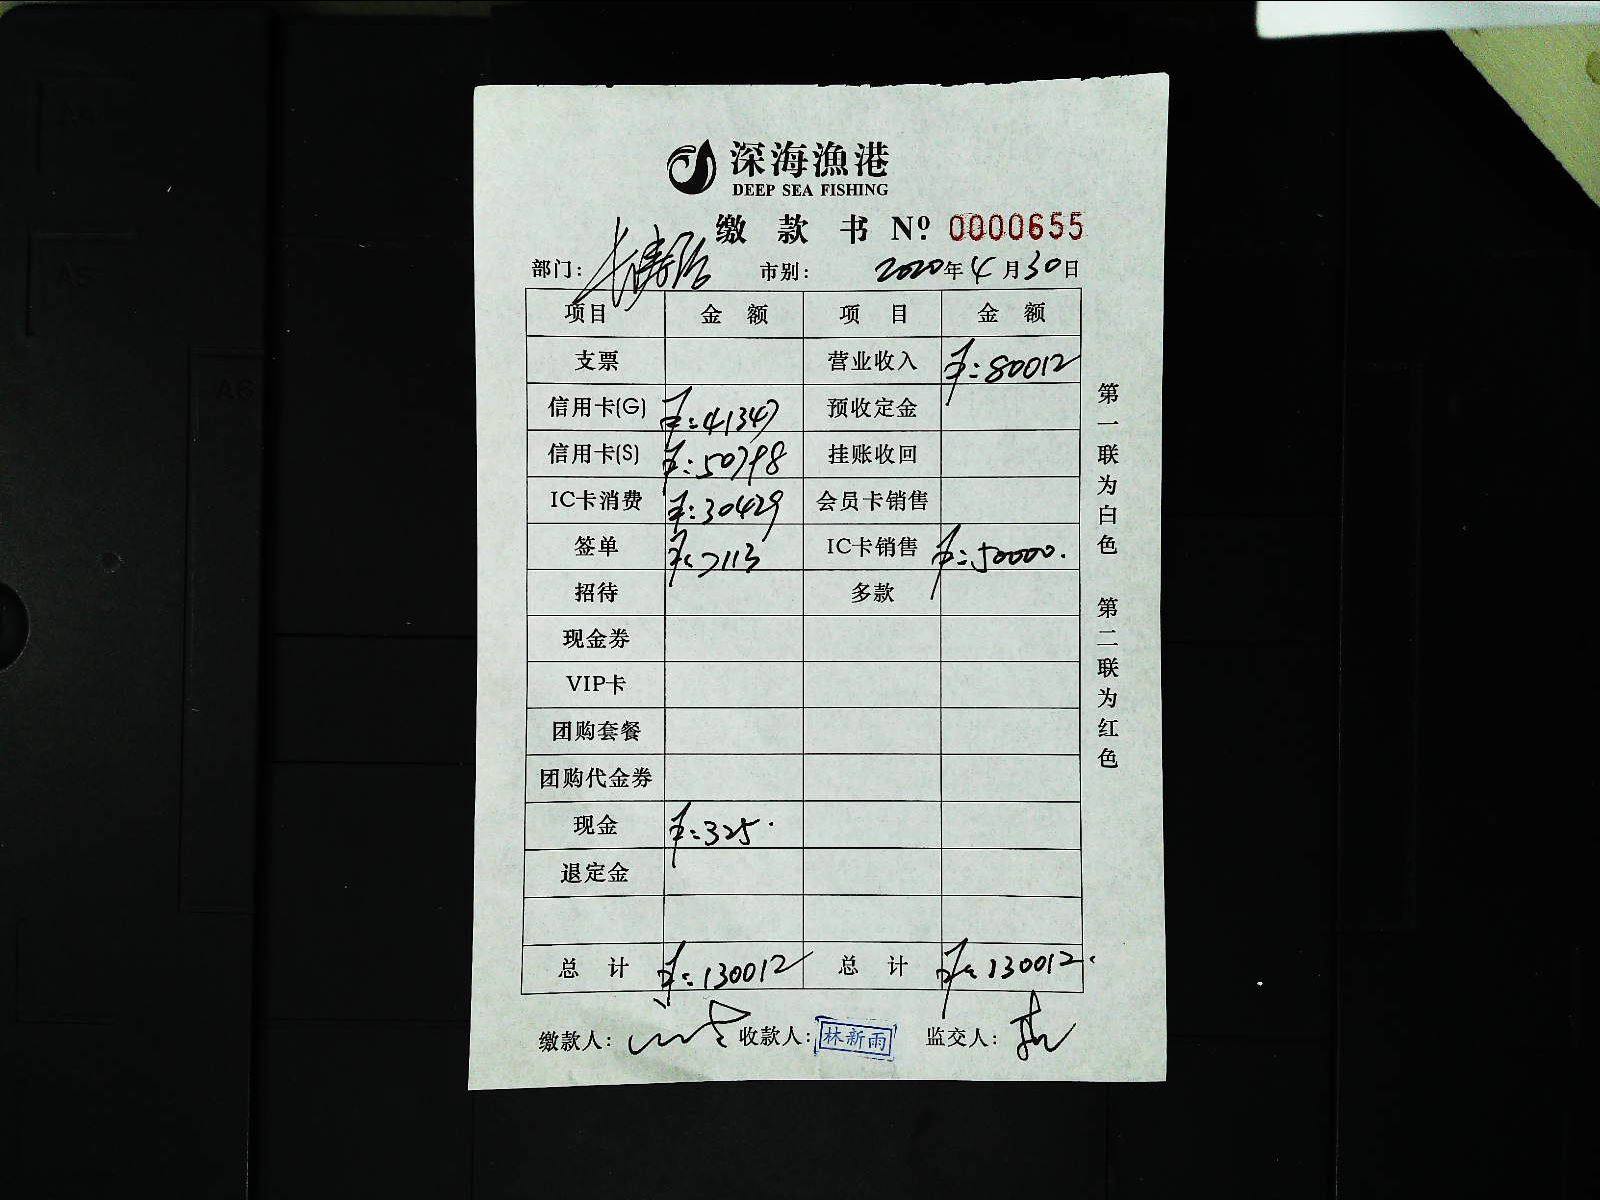 深海漁港
DEEP SEA FISHING
缴款书 Nº 0000655
部门: 长寿路 市别: 2020年4月30日
项目 金额 项目 金额
支票 营业收入 ¥:80012
信用卡(G) ¥:41347 预收定金
信用卡(S) ¥:50798 挂账收回
IC卡消费 ¥:30429 会员卡销售
签单 ¥:7113 IC卡销售 ¥:50000.
招待 多款
现金券
VIP卡
团购套餐
团购代金券
现金 ¥:325.
退定金
总计 ¥:130012 总计 ¥:130012.
缴款人: 收款人: 林新雨 监交人:
第一联为白色 第二联为红色